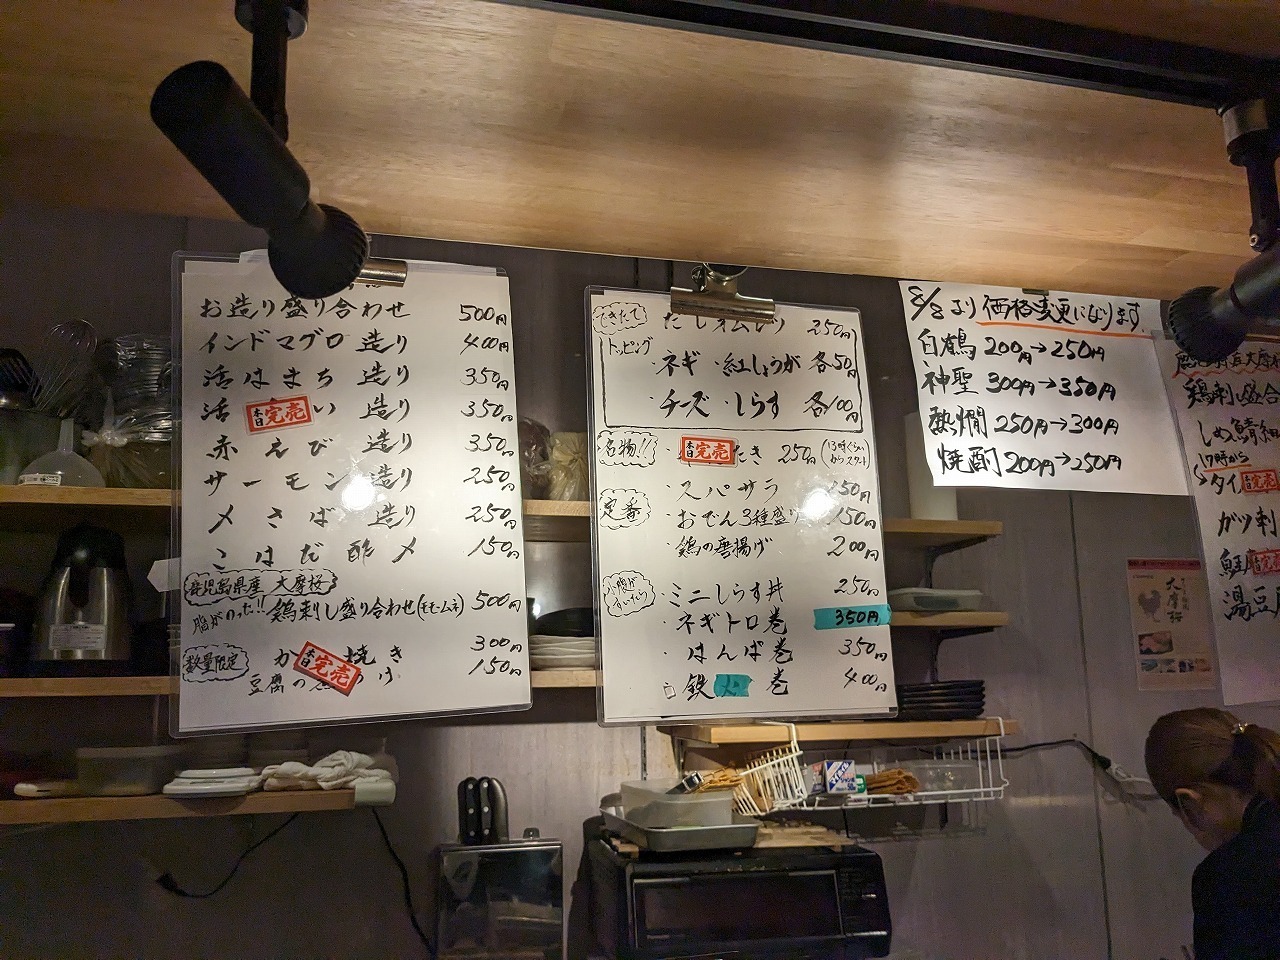 お造り盛り合わせ 500円
インドマグロ 造り 400円
活はまち 造り 350円
活 本日完売 い 造り 350円
赤えび 造り 350円
サーモン 造り 250円
〆さば 造り 250円
こはだ酢〆 150円
鹿児島県産 大摩桜
脂がのった!! 鶏刺し盛り合わせ(モモ・ムネ) 500円
数量限定
か 本日完売 焼き 300円
豆腐の け 150円
できたて だし オムレツ 250円
トッピング
・ネギ ・紅しょうが 各50円
・チーズ ・しらす 各100円
名物!! 本日完売 たき 250円 (13時ぐらいからスタート)
定番
・スパサラ 150円
・おでん3種盛り 150円
・鶏の唐揚げ 200円
小腹がすいたら
・ミニしらす丼 250円
・ネギトロ巻 350円
・はんぱ巻 350円
鉄火巻 400円
8/8より価格変更になります。
白鶴 200円→250円
神聖 300円→350円
熱燗 250円→300円
焼酎 200円→250円
鶏刺し盛合
しめ鯖
17時から
タイ 本日完売
ガツ刺
鮭 本日完売
湯豆腐
大摩桜